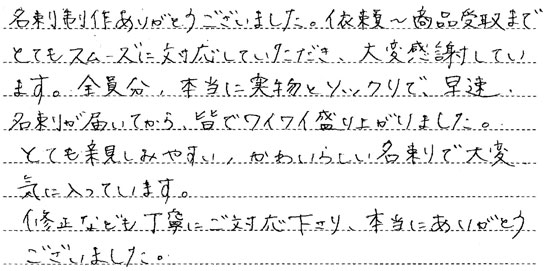 名刺制作ありがとうございました。依頼〜商品受取まで
とてもスムーズに対応していただき、大変感謝してい
ます。全員分、本当に実物とソックリで、早速、
名刺が届いてから、皆でワイワイ盛り上がりました。
とても親しみやすい、かわいらしい名刺で大変
気に入っています。
修正なども丁寧にご対応下さり、本当にありがとう
ございました。